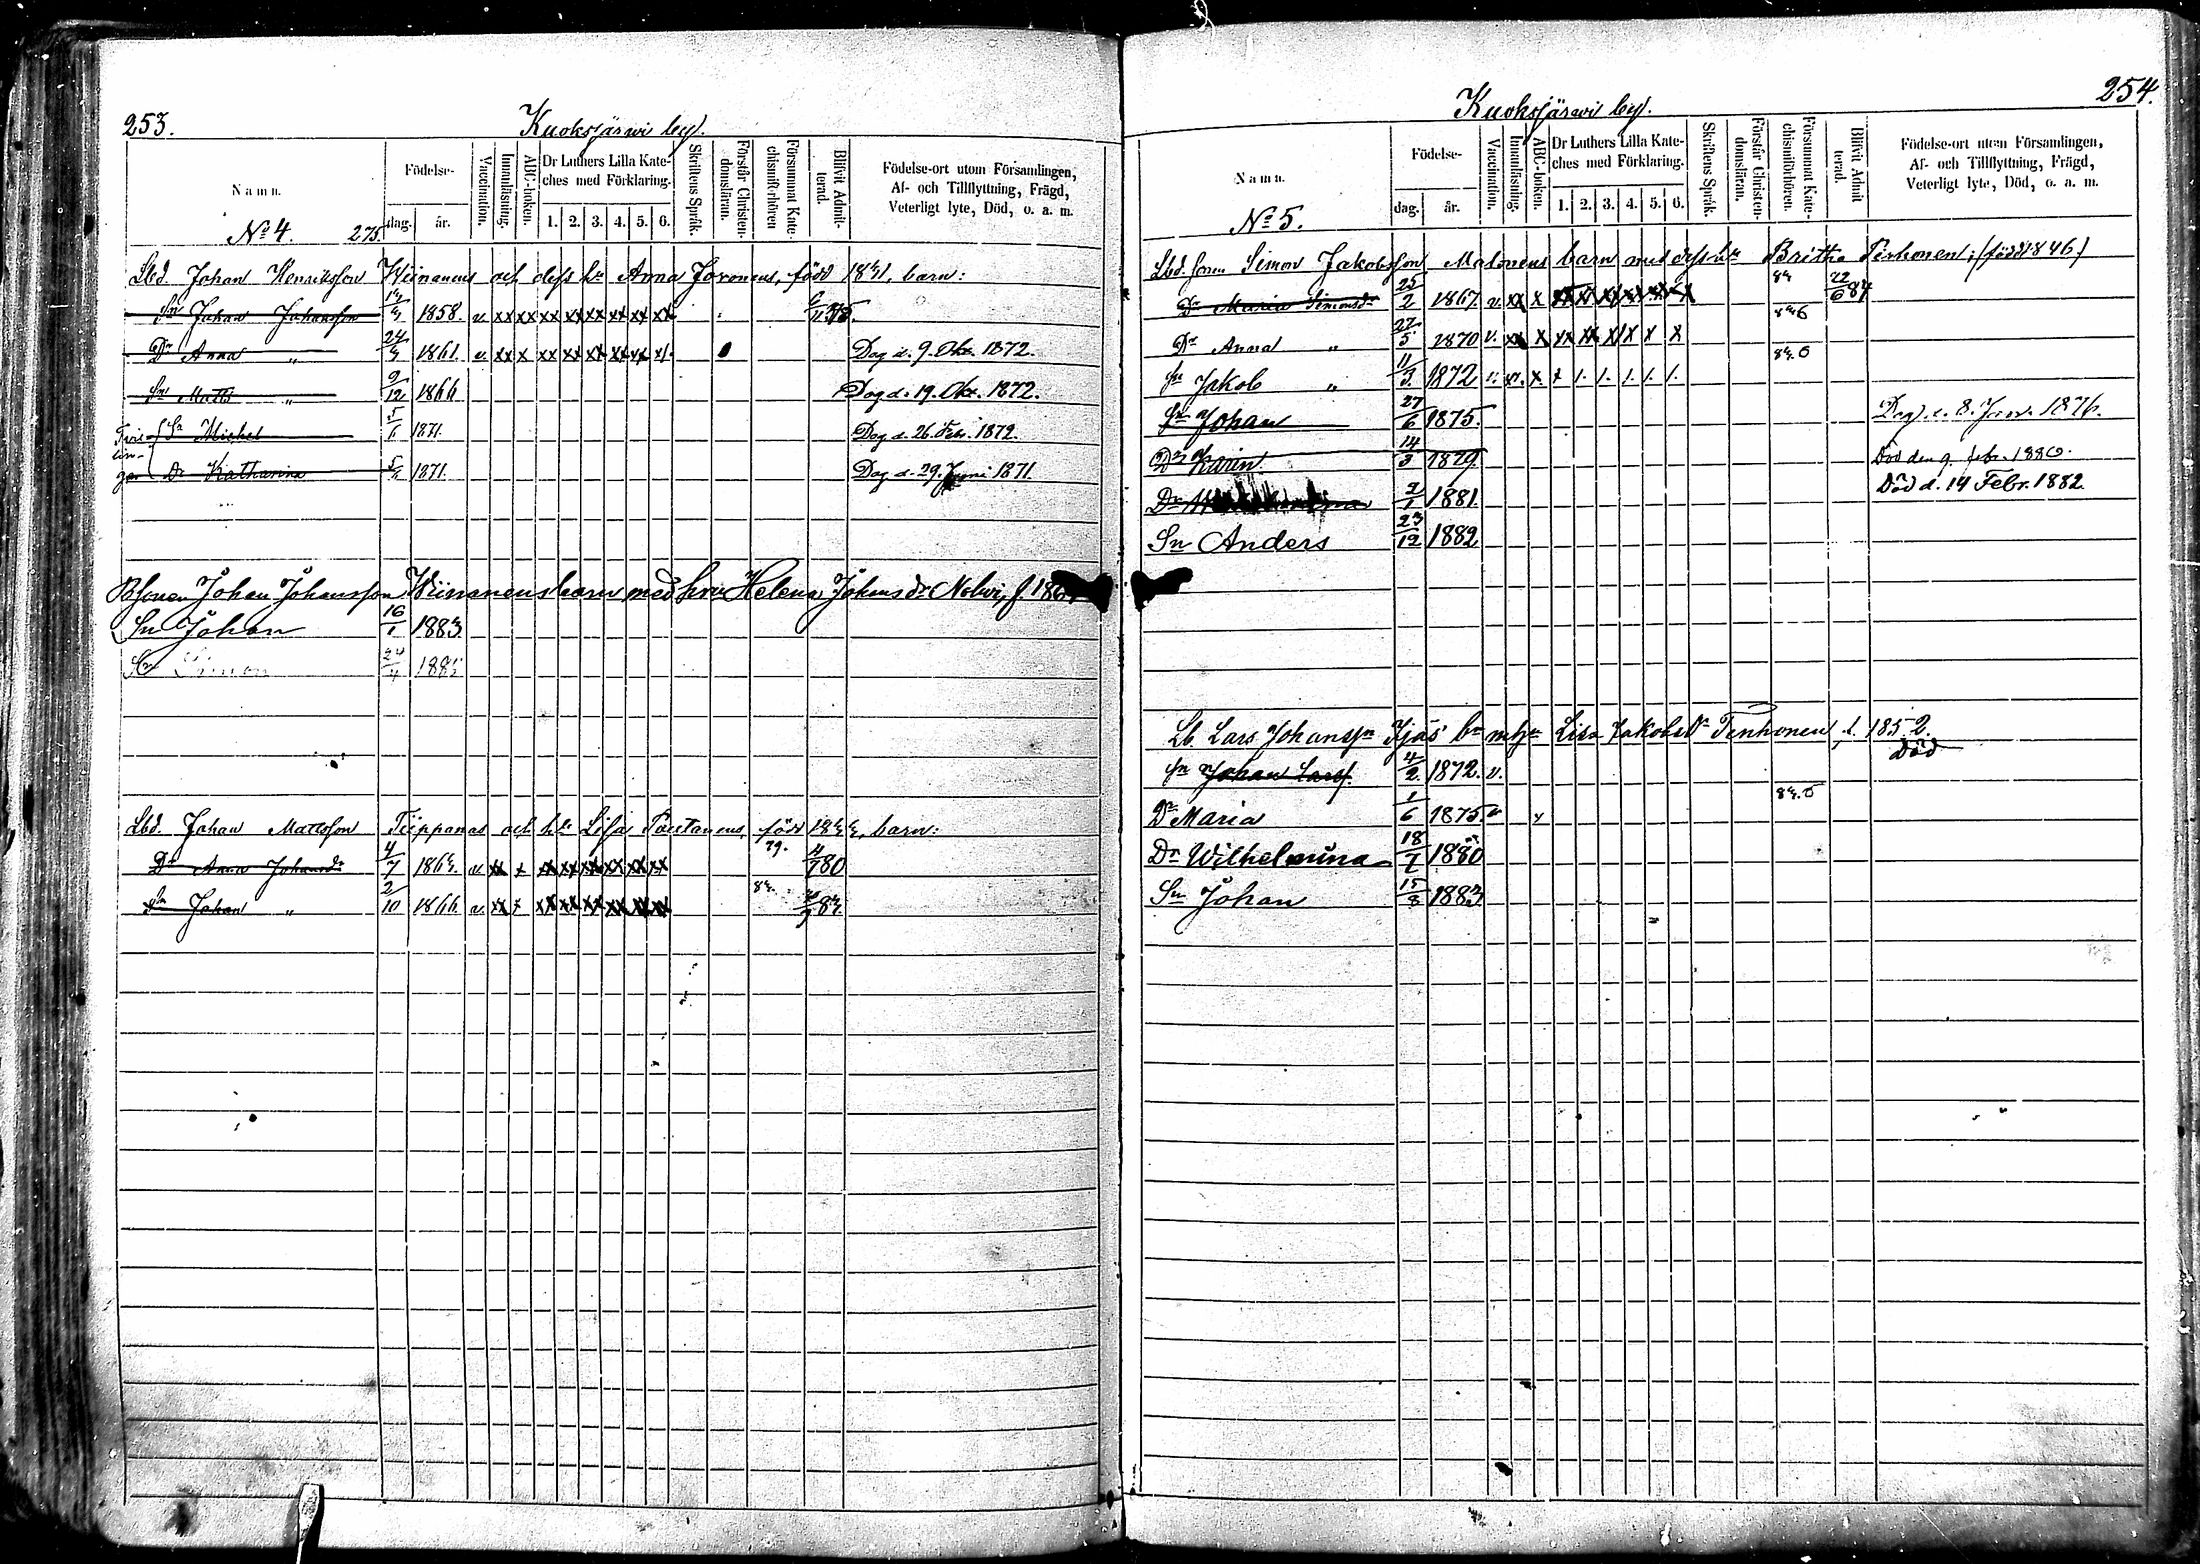 253.
Kuoksjärwi by.
Namn.
Födelse-
dag. år.
Vaccination.
Innanläsning.
ABC-boken.
Dr Luthers Lilla Kate-
ches med Förklaring.
1. 2. 3. 4. 5. 6.
Skriftens Språk.
Förstår Christen-
domsläran.
Försummat Kate-
chismiförhören
Blifvit Admit-
terad.
Födelse-ort utom Församlingen,
Af- och Tillflyttning, Frägd,
Veterligt lyte, Död, o. a. m.
No 4. 275.
Lbd Johan Henriksson Wiinanens och dess hu Anna Joronens, född 1841, barn:
Sn Johan Johansson 1858. v. xx xx xx xx xx xx xx xx
Dr Anna " 24 1861. v. xx x xx xx xx xx xx x/. Dog d. 9. Okt. 1872.
Sn Matts " 9/12 1866 Dog d. 19. Okt. 1872.
Tvil-
lin-
gar
Sn Michel 5/6 1871. Dog d. 26. Febr. 1872.
Dr Katharina 5/6 1871. Dog d. 29. Juni 1871.
Bsonen Johan Johansson Wiinanens barn med hru Helena Johans dr Nokwi, f. 186
Sn Johan 16/1 1883
Sn Simon 24/4 1885
Lbd. Johan Mattsson Tiippanas och hu Lisa född barn:
Dr Anna Johansdr 4/7 186 v. xx x xx xx xx xx xx xx 79. 80
Sn Johan " 2/10 1866. v. xx x xx xx xx xx xx xx
254.
Kuoksjärwi by.
Namn.
Födelse-
dag. år.
Vaccination.
Innanläsning.
ABC-boken.
Dr Luthers Lilla Kate-
ches med Förklaring.
1. 2. 3. 4. 5. 6.
Skriftens Språk.
Förstår Christen-
domsläran.
Försummat Kate-
chismiförhören.
Blifvit Admit
terad.
Födelse-ort utom Församlingen,
Af- och Tillflyttning, Frägd,
Veterligt lyte, Död, o. a. m.
No 5.
Lbd. sonen Simon Jakobsson Malonens barn med dess hu Britha Pirhonen; (född 1846)
Dr Maria Simonsdr 25/2 1867. v. xx x xx xx xx xx xx xx 22/6 87
Dr Anna " 27/5 1870 v. xx x xx xx x/ x x x
Sn Jakob " 11/3 1872 v. x. x. x /. /. /. /. /.
Sn Johan 27/6 1875. Dog d. 8. 1876.
Dr Karin. 14/3 1879. Död den 9. febr. 1880.
Dr 2/1 1881. Död d. 14 Febr. 1882.
Sn Anders 23/12 1882
Lb. Lars Johanssn bn m hu Lisa Jakobsdr Tenhonen, f. 1852.
Sn Johan Larss. 4/2 1872. v. Död
Dr Maria 1/6 1875 v
Dr Wilhelmina 18/7 1880
Sn Johan 15/8 1883